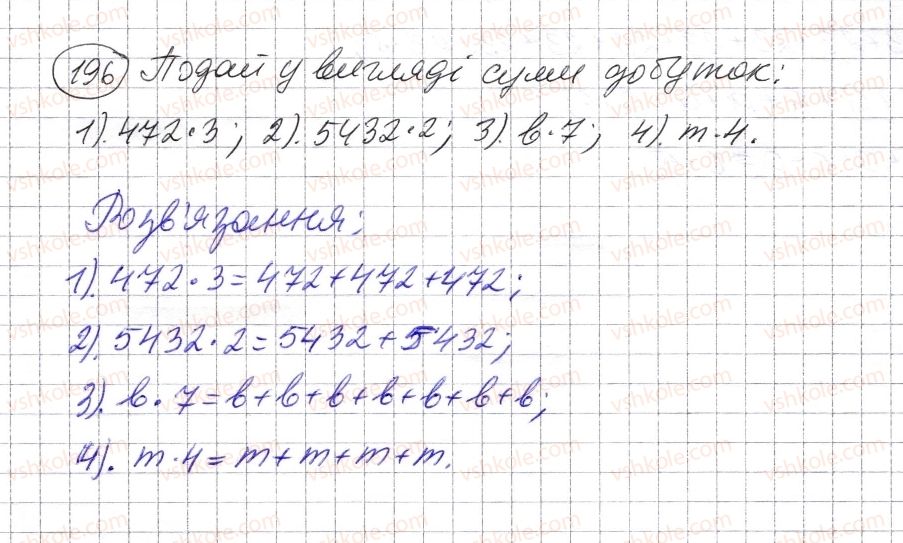 196 Подай у вигляді суми добуток:
1). 472·3; 2). 5432·2; 3). b·7; 4). m·4.
Розв'язання:
1). 472·3=472+472+472;
2). 5432·2=5432+5432;
3). b·7=b+b+b+b+b+b+b;
4). m·4=m+m+m+m.